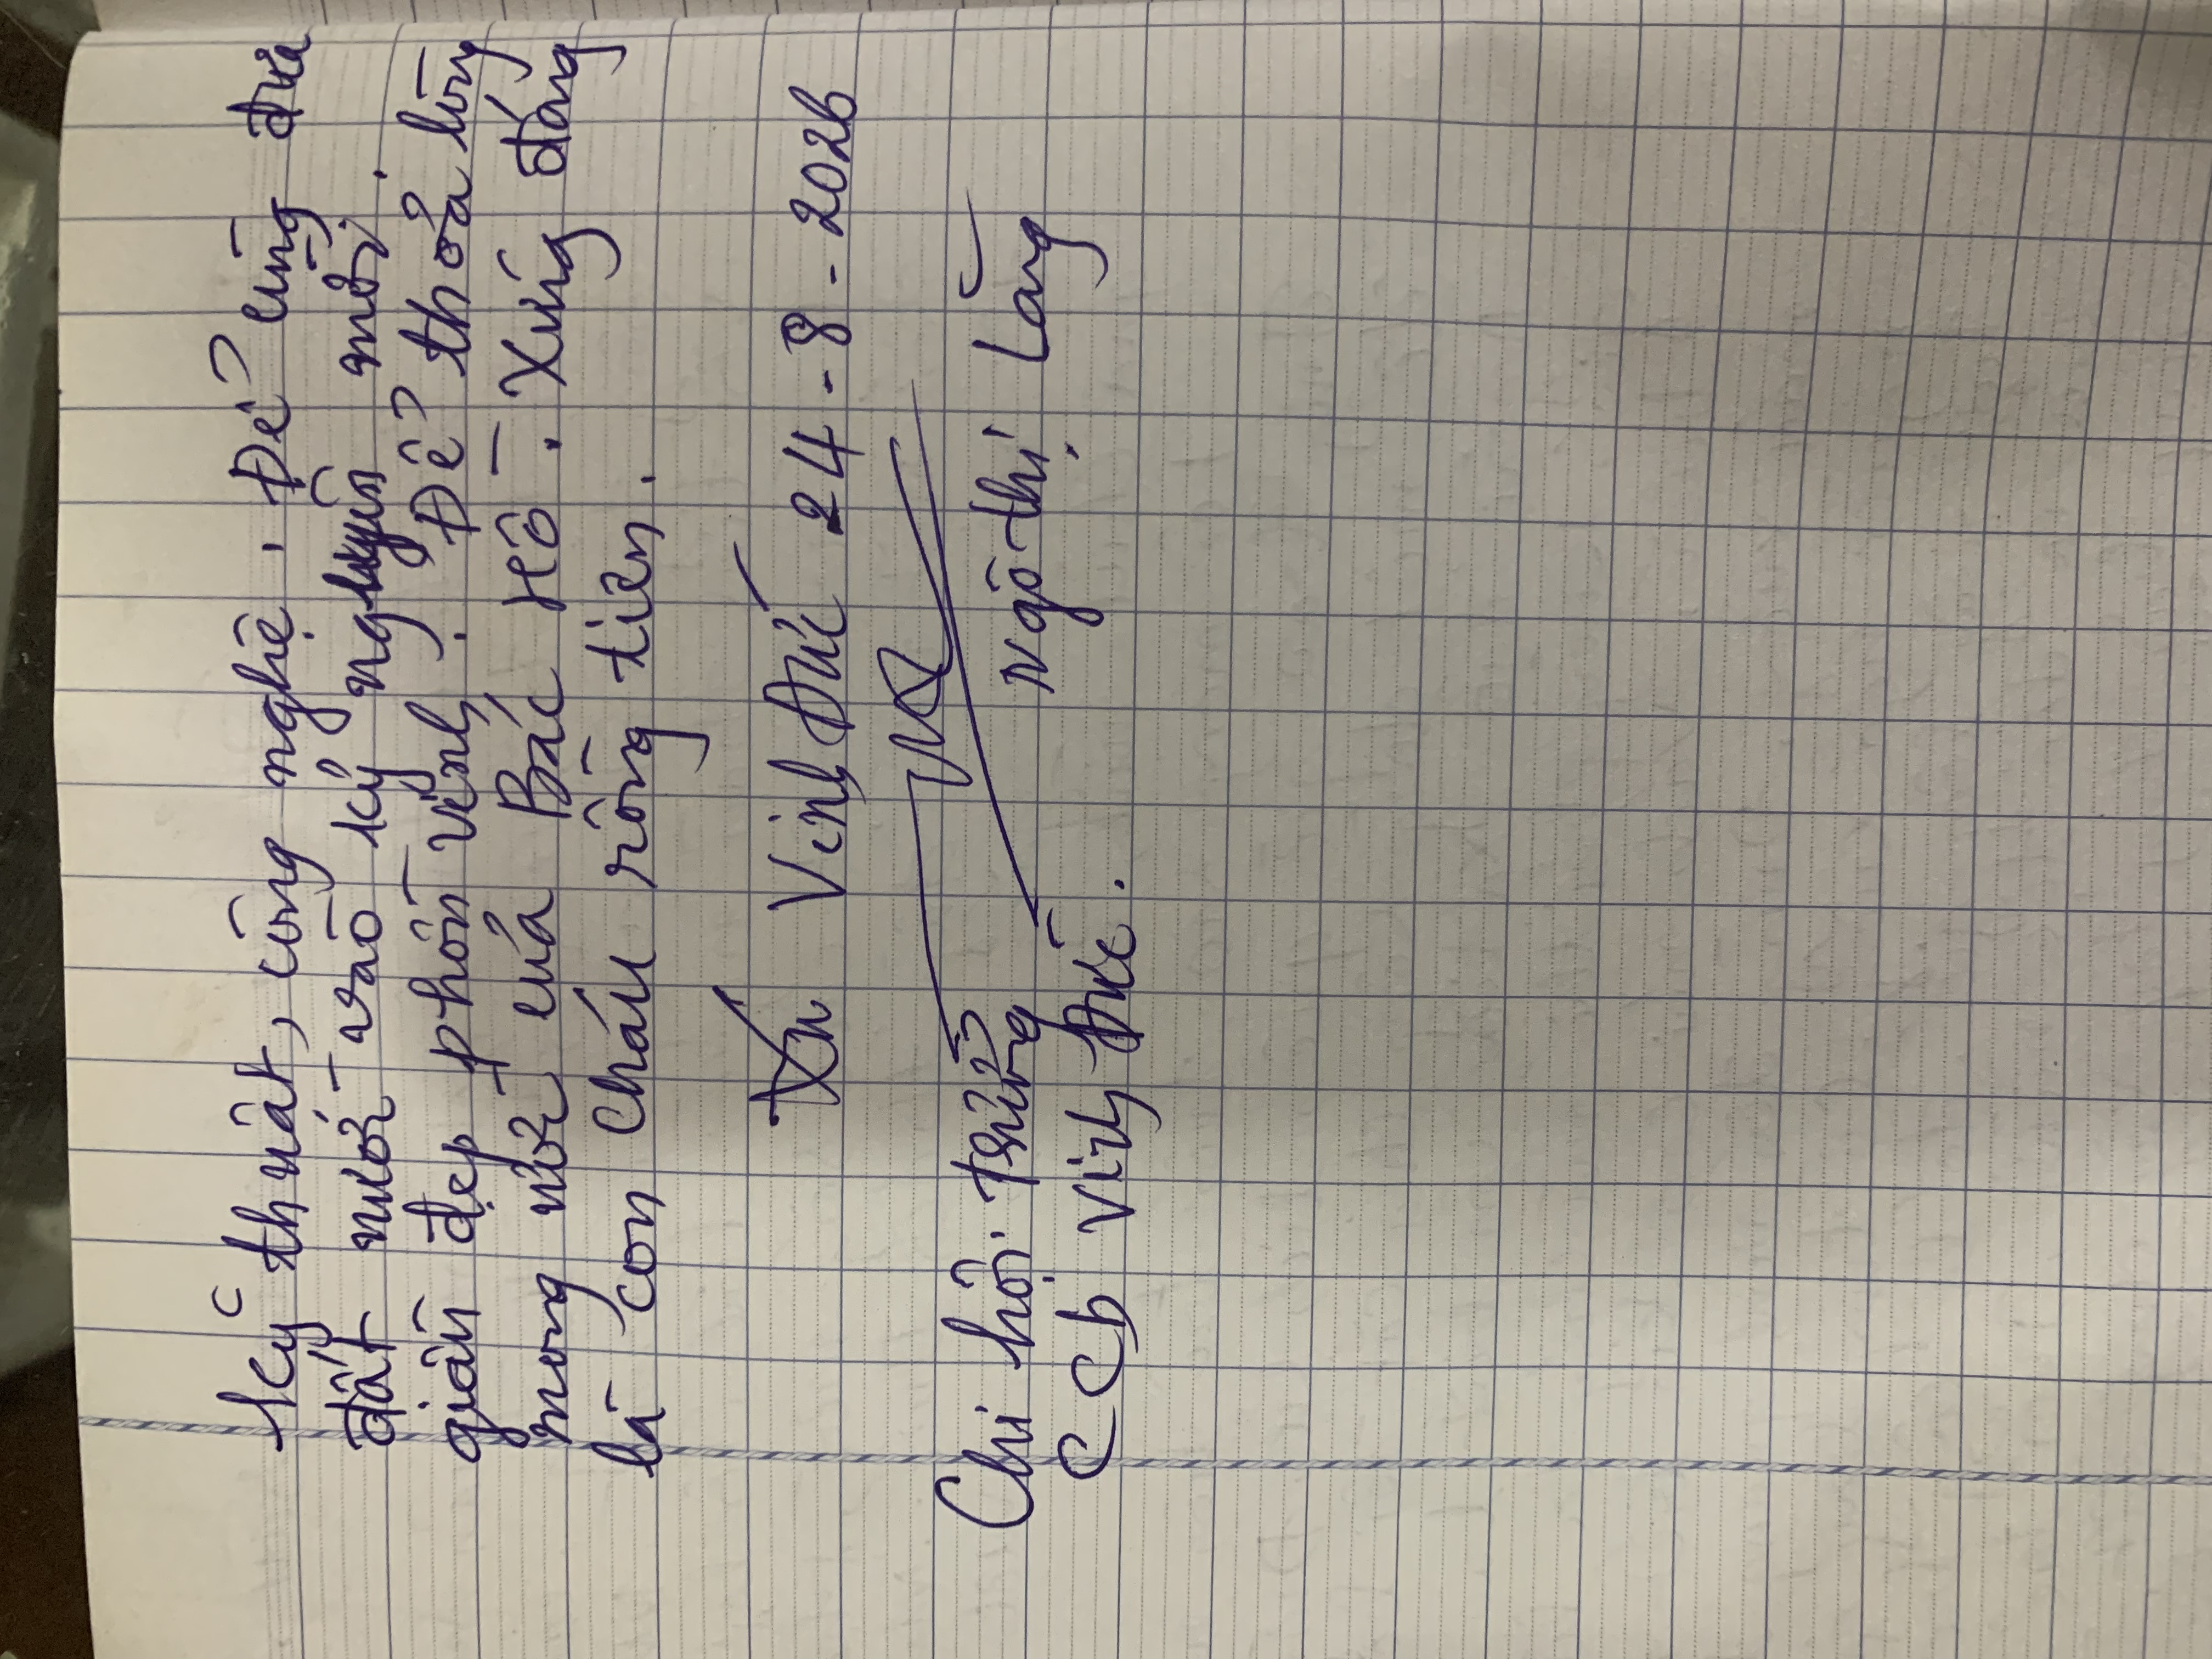 kỹ thuật, công nghệ. Để cùng đưa
đất nước vào kỷ nguyên mới.
giàu đẹp phồn vinh. Để thoả lòng
mong ước của Bác Hồ. Xứng đáng
là con cháu rồng tiên.
Vĩnh Đức 24-8-2026
Chi hội trưởng
Ngô thị Lăng
CCb Vĩnh Đức.